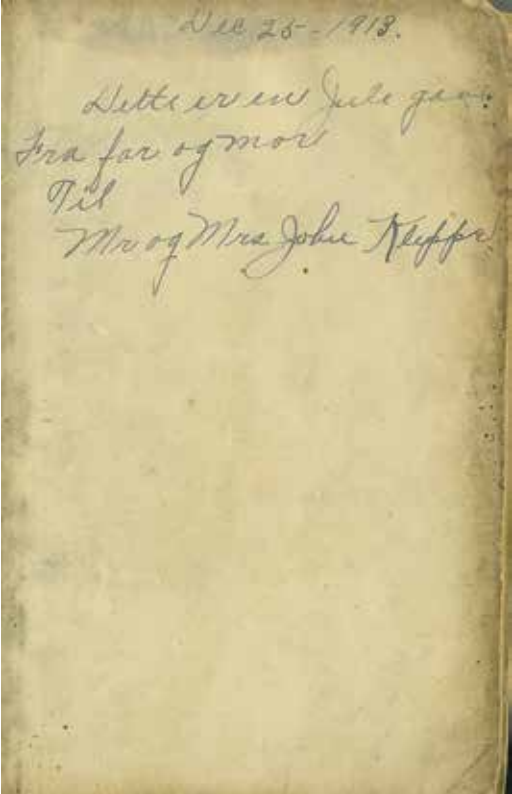 Dec 25-1913.
Dette er en Jule gav
Fra far og mor
Til
Mr og Mrs John Kleppe